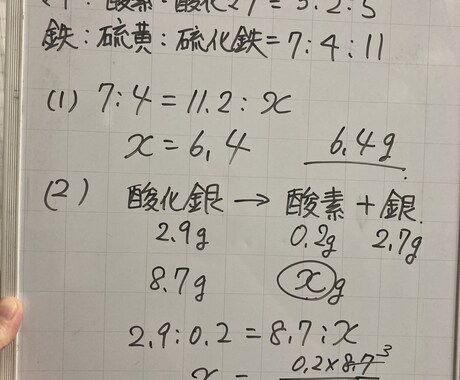 鉄:硫黄:硫化鉄=7:4:11
(1) 7:4=11.2:x
x=6.4 6.4g
(2) 酸化銀→酸素+銀
2.9g 0.2g 2.7g
8.7g xg
2.9:0.2=8.7:x
x= 0.2×8.7 3